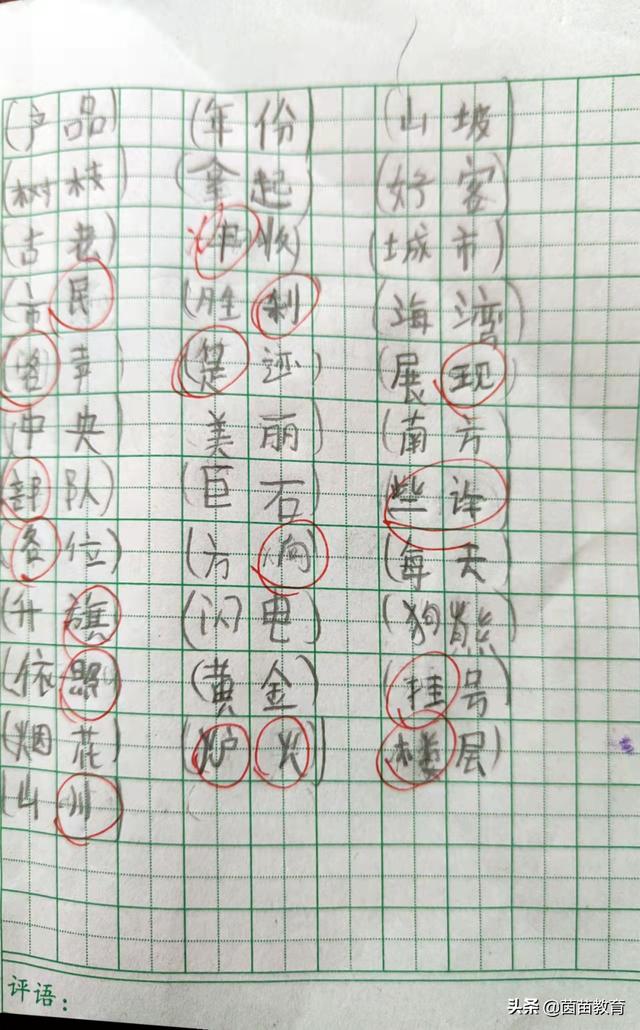 (产品) (年份) (山坡)
(树枝) (拿起) (好客)
(古老) 收) (城市)
(市民) (胜利) (海湾)
声) 还) (展现)
(中央) 美丽) (南方)
(部队) (巨石) (些许
(各位) (方向) (每天)
(升旗) (闪电) (狗熊)
(依照) (黄金) (挂号
(烟花) (炉火) (楼层)
(山川)
评语：
头条 @茵苗教育